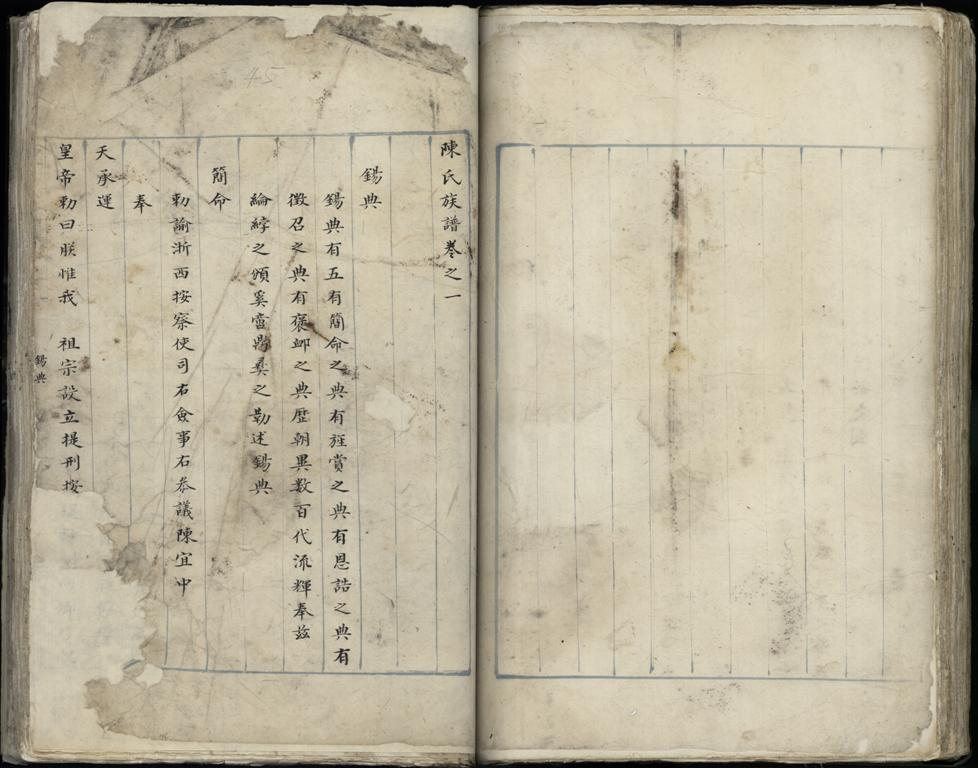 陳氏族譜卷之一
錫典
錫典有五有簡命之典有旌賞之典有恩誥之典有
徵召之典有褒卹之典歷朝異數百代流輝奉茲
綸綍之頒奚啻鼎彝之勒述錫典
簡命
勅諭浙西按察使司右僉事右叅議陳宜中
奉
天承運
皇帝勅曰朕惟我 祖宗設立提刑按
錫典
45